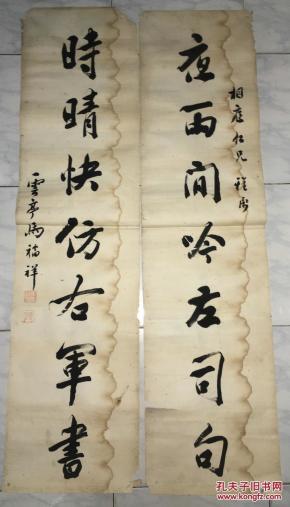 夜雨间吟左司句
相應仁兄雅属
時晴快仿右軍書
雲亭馬福祥
孔夫子旧书网